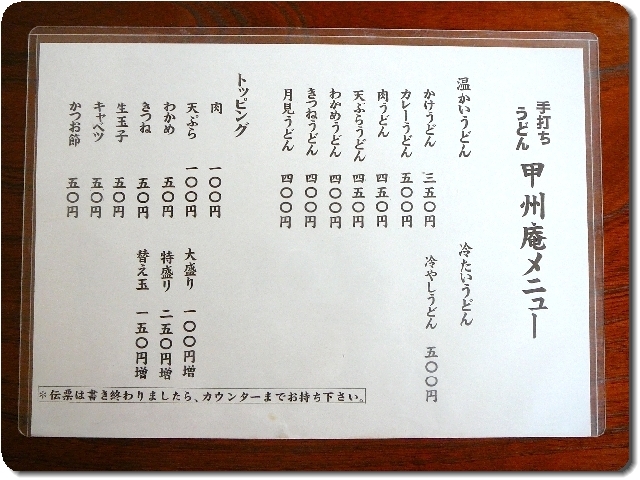 手打ち
うどん 甲州庵メニュー
温かいうどん
かけうどん 三五〇円
カレーうどん 五〇〇円
肉うどん 四五〇円
天ぷらうどん 四五〇円
わかめうどん 四〇〇円
きつねうどん 四〇〇円
月見うどん 四〇〇円
冷たいうどん
冷やしうどん 五〇〇円
トッピング
肉 一〇〇円
天ぷら 一〇〇円
わかめ 五〇円
きつね 五〇円
生玉子 五〇円
キャベツ 五〇円
かつお節 五〇円
大盛り 一〇〇円増
特盛り 二五〇円増
替え玉 一五〇円増
※伝票は書き終わりましたら、カウンターまでお持ち下さい。